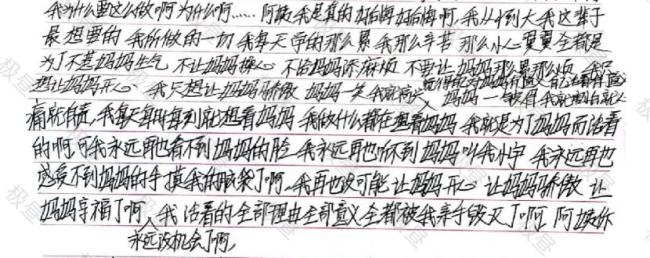 我为什么要这么做啊为什么啊……阿姨我是真的好后悔好后悔啊 我从小到大我这辈子
最想要的 我所做的一切 我每天学的那么累 我那么辛苦 那么小心翼翼全都是
为了不惹妈妈生气 不让妈妈操心 不给妈妈添麻烦 不要让妈妈那么累那么烦 我只
想让妈妈开心 我只想让妈妈骄傲 妈妈一笑我就 妈妈一 我就
痛就自责,我每天每时每刻就想着妈妈 我做什么都在想着妈妈 我就是为了妈妈而活着
的啊 可我永远再也看不到妈妈的脸 我永远再也听不到妈妈叫我小宇 我永远再也
感受不到妈妈的手摸我的脑袋了啊,我再也没可能 让妈妈开心 让妈妈骄傲 让
妈妈享福了啊,我活着的全部理由全部意义全都被我亲手毁灭了啊 阿姨你
永远没机会了啊
极昼